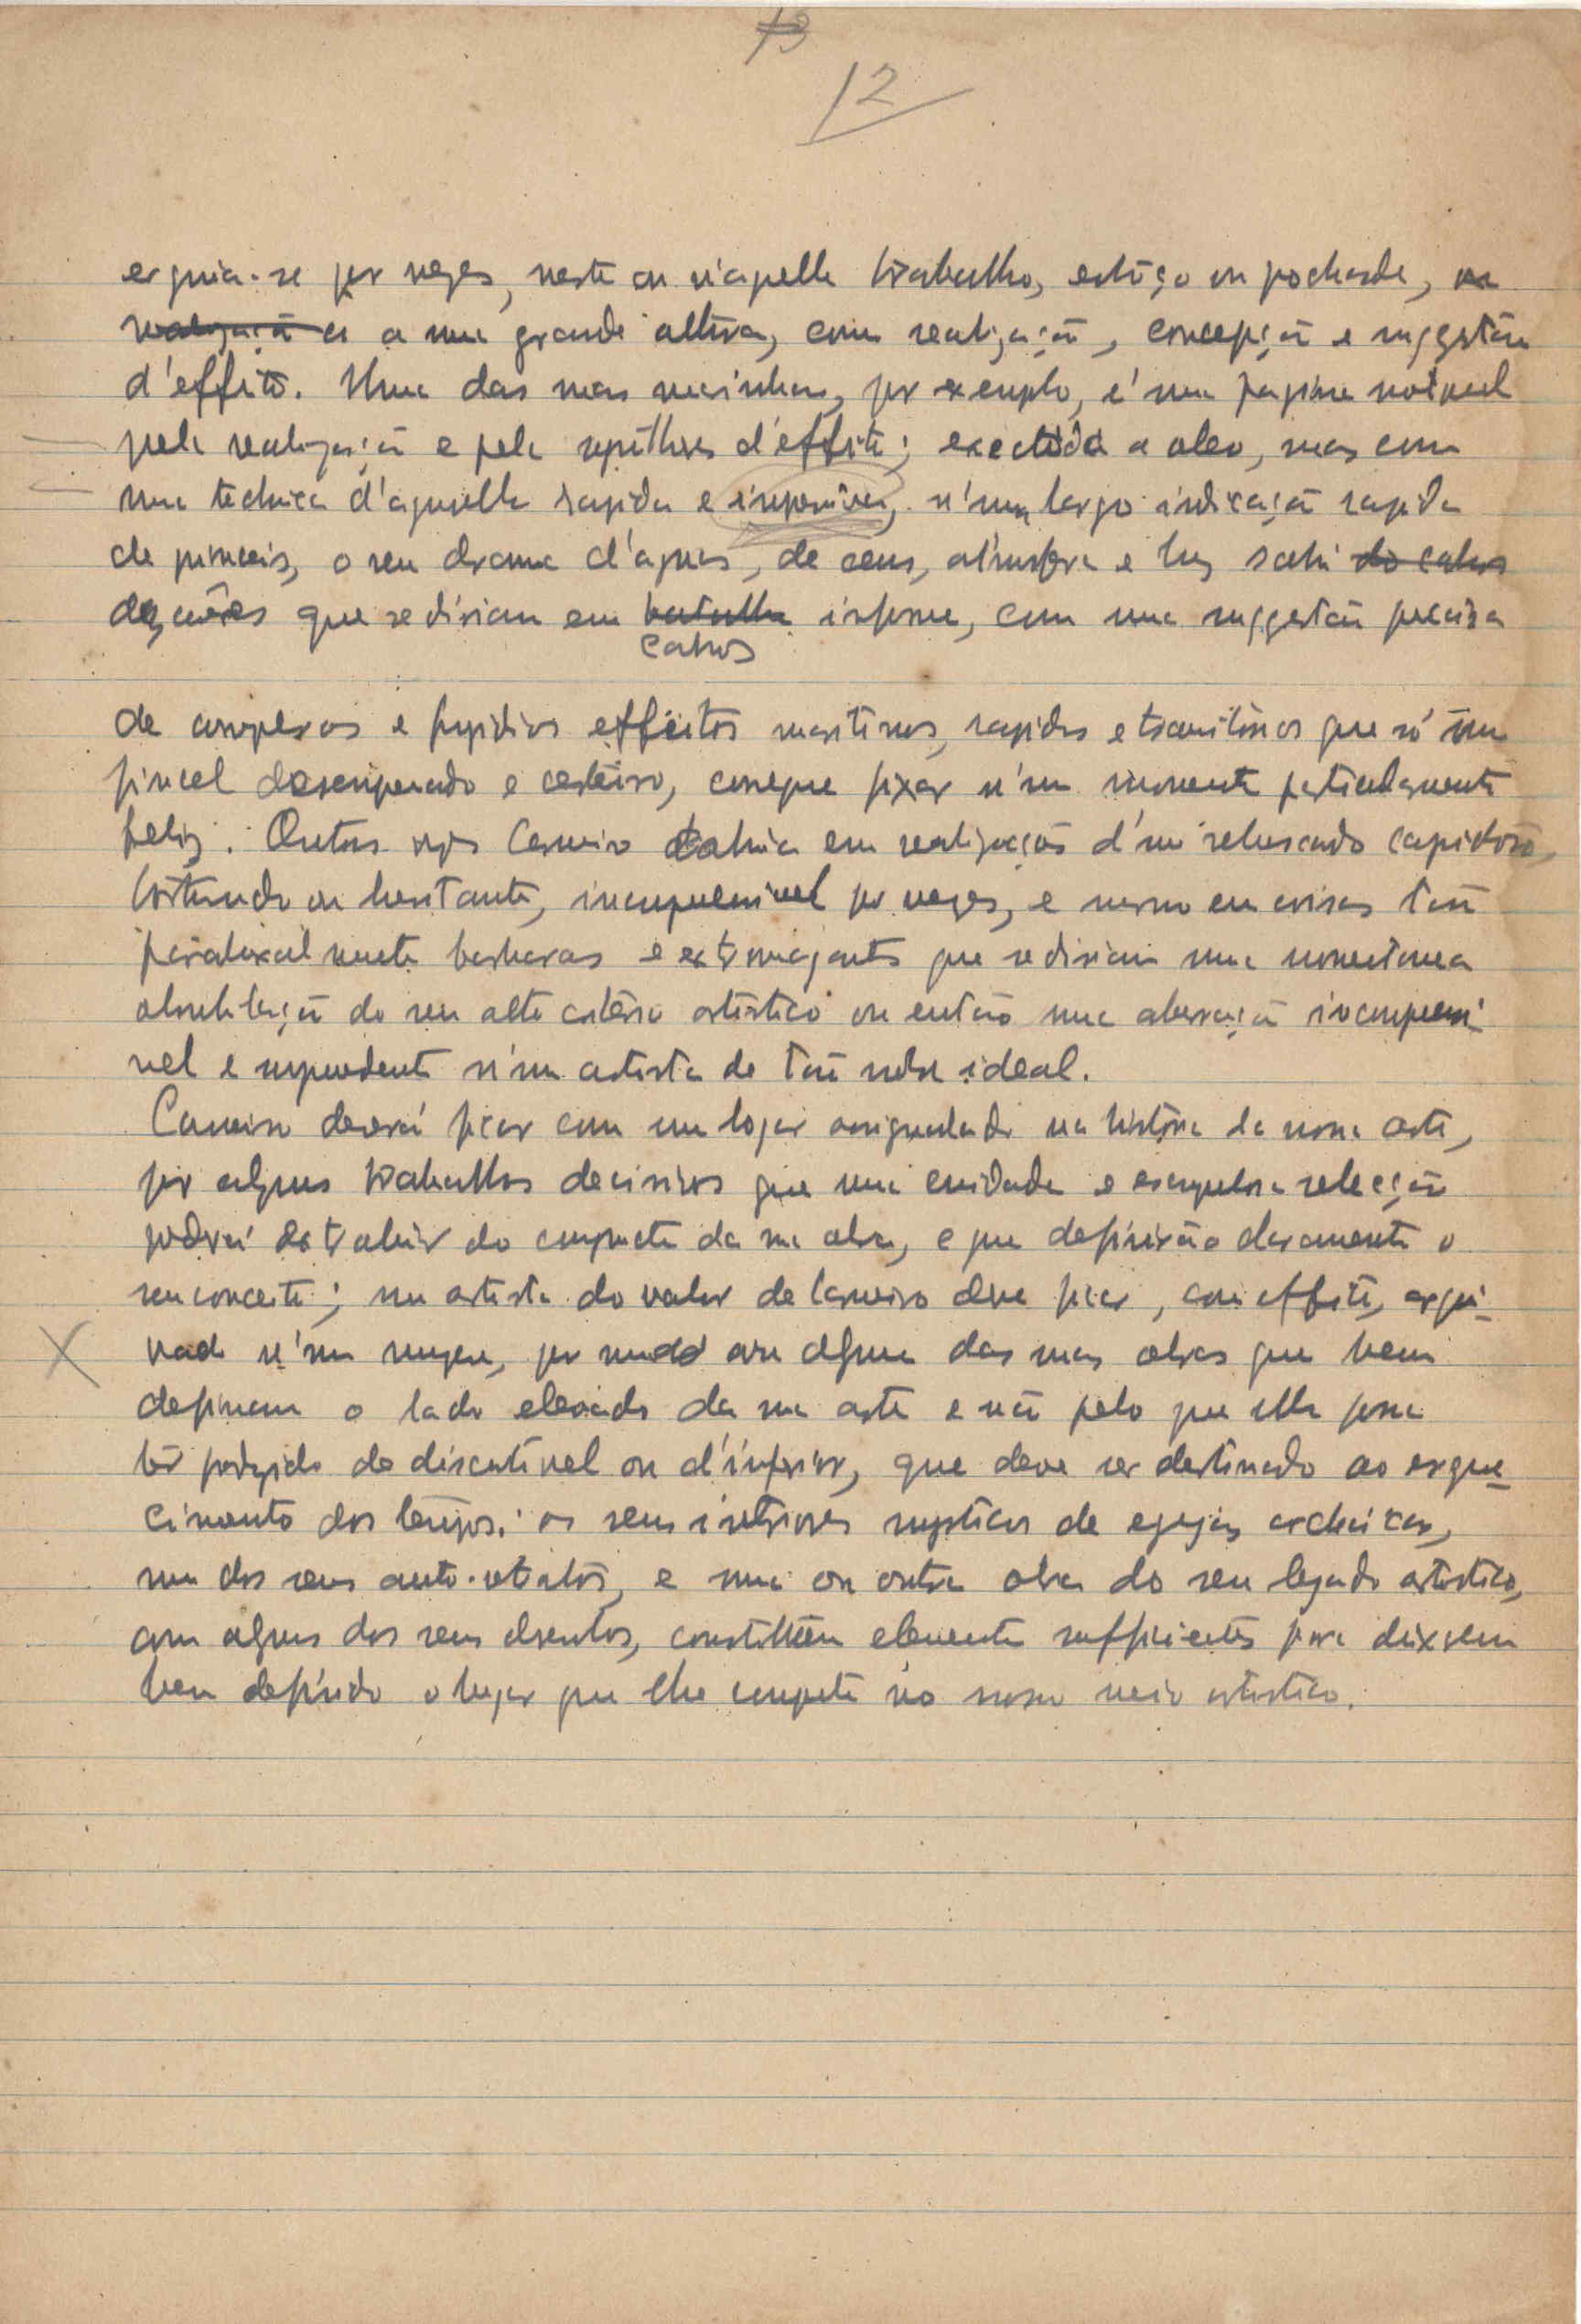 13
12
erguia-se por vezes, neste ou n'aquelle trabalho, esboço ou pochade, na
realização a uma grande altura, com realização, concepção e suggestão
d'effito. Uma das suas marinhas, por exemplo, é uma pagina notavel
pela realização e pela d'effito; a oleo, mas com
uma technica d'aguarella rapida e, n'uma larga indicação rapida
de pinceis, o seu drama d'aguas, de ceus, atmosfera e luz sahi do cahos
das côres que se diriam em batalha informe, com uma suggestão precisa
cahos
de complexos e fugidios effeitos maritimos, rapidos e transitorios que só um
pincel desempenado e certeiro, consegue fixar n'um momento particularmente
feliz. Outras vezes Carneiro cahia em realizações d'um rebuscado
torturado ou hesitante, incomprensivel por vezes, e mesmo em coisas tão
paradoxalmente barbaras e extravagantes que se diriam uma momentanea
obnubilação do seu alto critério artistico ou então uma aberração incomprensi-
vel e surprendente n'um artista de tão nobre ideal.
Carneiro deverá ficar com um logar assignalado na história da nossa arte,
por alguns trabalhos decisivos que uma cuidada e escrupulosa selecção
poderá extrahir do conjuncto da sua obra, e que definirão claramente o
seu conceito; um artista do valor de Carneiro deve ficar, com effito, arqui-
vado n'um museu, por com alguma das suas obras que bem
definam o lado elevado da sua arte e não pelo que ella possa
ter produzido de discutivel ou d'inferior, que deve ser destinado ao esque-
cimento dos tempos: os seus interiores mysticos de egrejas archaicas,
um dos seus auto-retratos, e uma ou outra obra do seu legado artistico,
com alguns dos seus desenhos, constituem elementos sufficientes para deixarem
bem definido o lugar que lhe compete no nosso meio artistico.